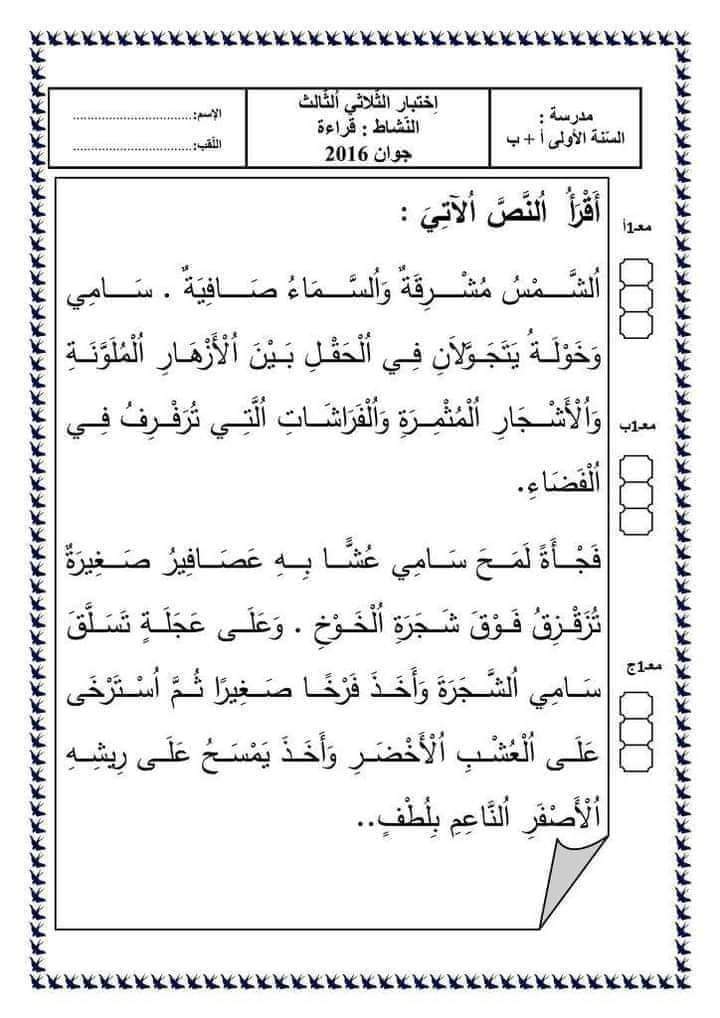 مدرسة :
السّنة الأولى أ + ب
اِختبار الثّلاثي اُلثّالث
النّشاط : قراءة
جوان 2016
الإسم:................................
اللّقب:................................
أَقْرَأُ اُلنَّصَّ اُلآتِيَ :
معـ1أ
اُلشَّمْسُ مُشْرِقَةٌ وَاُلسَّمَاءُ صَافِيَةٌ . سَامِي
وَخَوْلَةُ يَتَجَوَّلاَنِ فِي اُلْحَقْلِ بَيْنَ اُلْأَزْهَارِ اُلْمُلَوَّنَةِ
وَاُلْأَشْجَارِ اُلْمُثْمِرَةِ وَاُلْفَرَاشَاتِ اُلَّتِي تُرَفْرِفُ فِي
معـ1ب
اُلْفَضَاءِ.
فَجْأَةً لَمَحَ سَامِي عُشًّا بِهِ عَصَافِيرُ صَغِيرَةٌ
تُزَقْزِقُ فَوْقَ شَجَرَةِ اُلْخَوْخِ . وَعَلَى عَجَلَةٍ تَسَلَّقَ
معـ1ج
سَامِي اُلشَّجَرَةَ وَأَخَذَ فَرْخًا صَغِيرًا ثُمَّ اُسْتَرْخَى
عَلَى اُلْعُشْبِ اُلْأَخْضَرِ وَأَخَذَ يَمْسَحُ عَلَى رِيشِهِ
اُلْأَصْفَرِ اُلنَّاعِمِ بِلُطْفٍ..